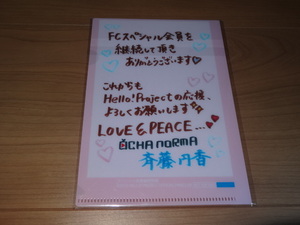 FCスペシャル会員を
継続して頂き
ありがとうございます♡
これからも
Hello! Projectの応援、
よろしくお願いします
LOVE & PEACE...♡
OCHA NORMA
斉藤円香